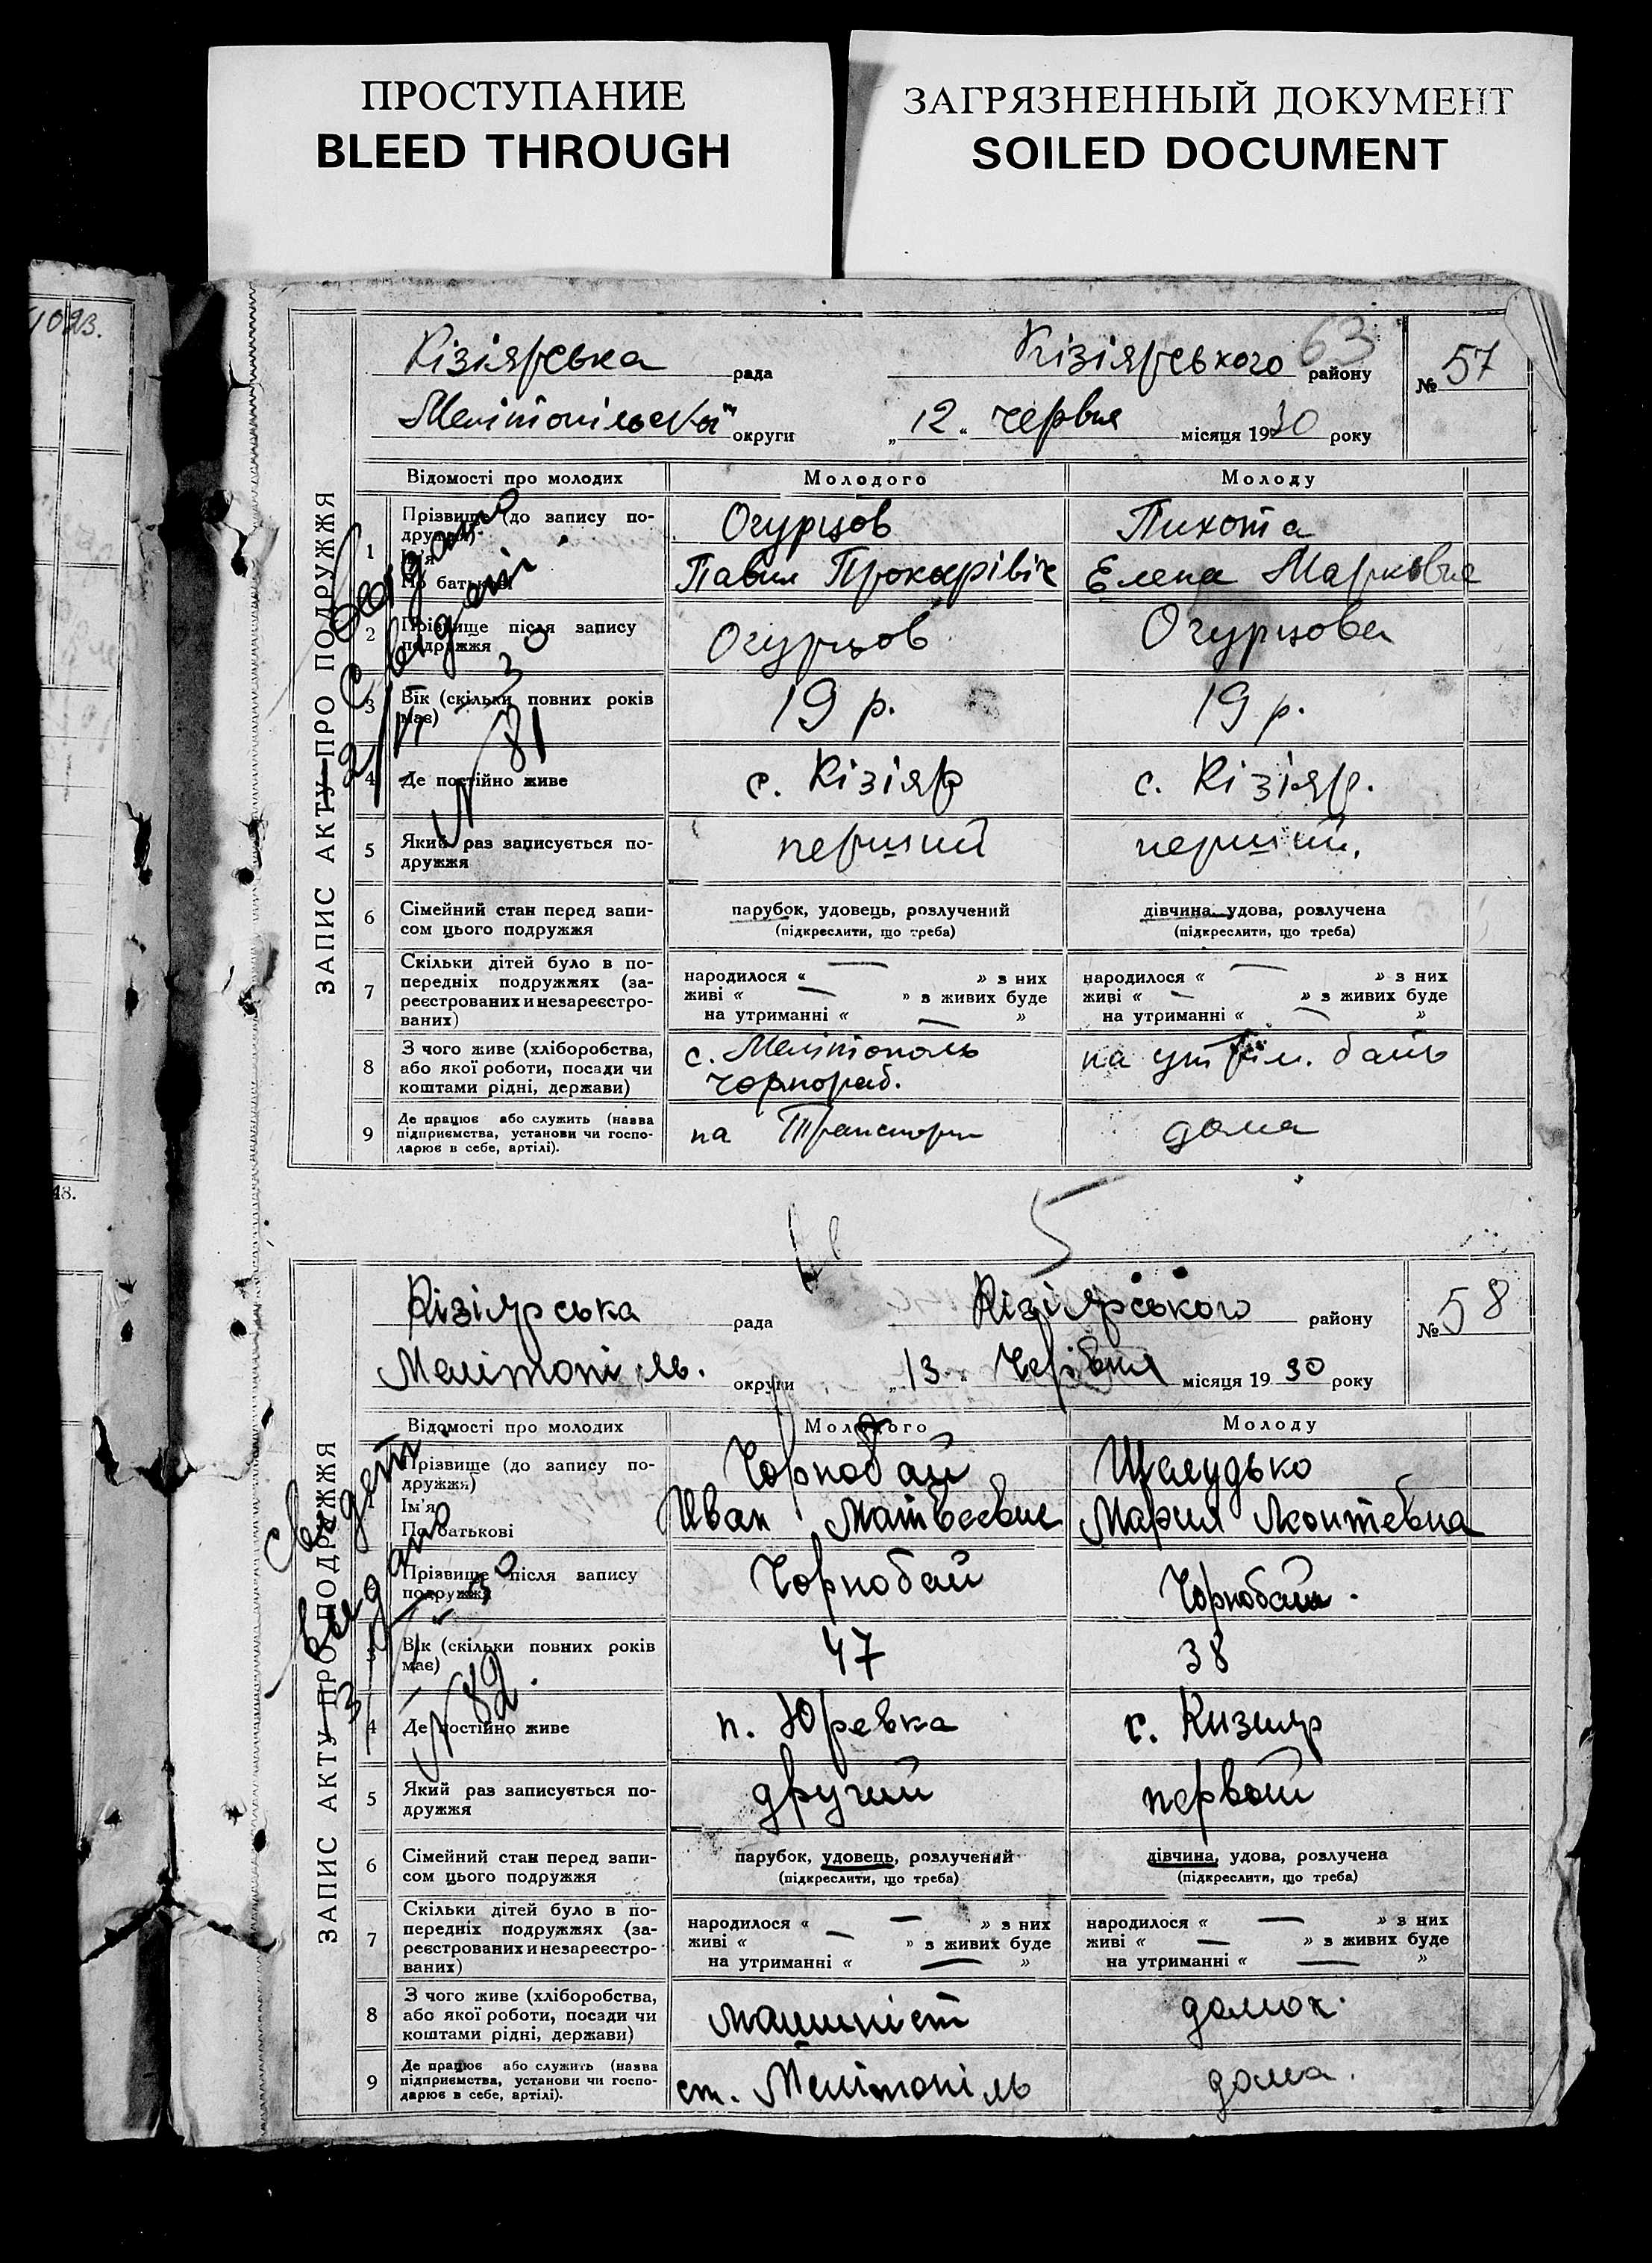 ПРОСТУПАНИЕ
BLEED THROUGH
ЗАГРЯЗНЕННЫЙ ДОКУМЕНТ
SOILED DOCUMENT
63
Кізіярська рада Кізіярського району № 57
Мелітопільської округи „12“ червня місяця 1930 року
ЗАПИС АКТУ ПРО ПОДРУЖЖЯ
Відомості про молодих Молодого Молоду
1 Прізвище (до запису по-
дружжя) Огурцов Пихота
Ім'я
По батькові Павил Прокоривіч Елена Марковна
2 Прізвище після запису
подружжя Огурцов Огурцова
3 Вік (скільки повних років
має) 19 р. 19 р.
4 Де постійно живе с. Кізіяр с. Кізіяр.
5 Який раз записується по-
дружжя перший перший.
6 Сімейний стан перед запи-
сом цього подружжя парубок, удовець, розлучений
(підкреслити, що треба) дівчина, удова, розлучена
(підкреслити, що треба)
7 Скільки дітей було в по-
передніх подружжях (за-
реєстрованих и незареєстро-
ваних) народилося « — » з них
живі « — » з живих буде
на утриманні « — »
народилося « — » з них
живі « — » з живих буде
на утриманні « — »
8 З чого живе (хліборобства,
або якої роботи, посади чи
коштами рідні, держави) с. Мелітополь
чорнораб. на утрим. батьк
9 Де працює або служить (назва
підприємства, установи чи госпо-
дарює в себе, артілі). на Транспорт дома
видано
свідит.
2/VI 30
№ 81
5
Кізіярська рада Кізіярського району № 58
Мелітопіль. округи „13“ Червня місяця 1930 року
ЗАПИС АКТУ ПРО ПОДРУЖЖЯ
Відомості про молодих Молодого Молоду
Прізвище (до запису по-
дружжя) Чорнобай Шалудько
Ім'я
По батькові Иван Матвеевич Мария Леонтевна
Прізвище після запису
подружжя Чорнобай Чорнобай.
3 Вік (скільки повних років
має) 47 38
4 Де постійно живе п. Юревка с. Кизияр
5 Який раз записується по-
дружжя другий первый
6 Сімейний стан перед запи-
сом цього подружжя парубок, удовець, розлучений
(підкреслити, що треба) дівчина, удова, розлучена
(підкреслити, що треба)
7 Скільки дітей було в по-
передніх подружжях (за-
реєстрованих и незареєстро-
ваних) народилося « — » з них
живі « — » з живих буде
на утриманні « — »
народилося « — » з них
живі « — » з живих буде
на утриманні « — »
8 З чого живе (хліборобства,
або якої роботи, посади чи
коштами рідні, держави) машиніст домох.
9 Де працює або служить (назва
підприємства, установи чи госпо-
дарює в себе, артілі). ст. Мелітопіль дома.
свидет.
видано
№ 82.